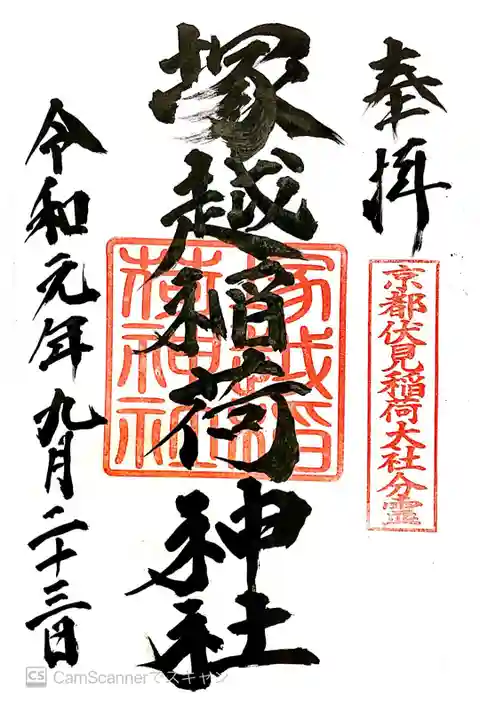 奉拝
京都伏見稲荷大社分霊
塚越稲荷神社
塚越稲荷神社
令和元年九月二十三日
CS CamScannerでスキャン